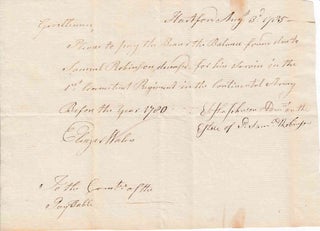 Hartford Aug 3d 1785
Gentlemen
Please to pay the Bearer the Balance found due to
Samuel Robinson deceased for his Service in the
1st Connecticut Regiment in the Continental Army
Before the Year 1780
on the
Estate of Robinson
Eliezer Wales
To the Committee of the
Pay Table